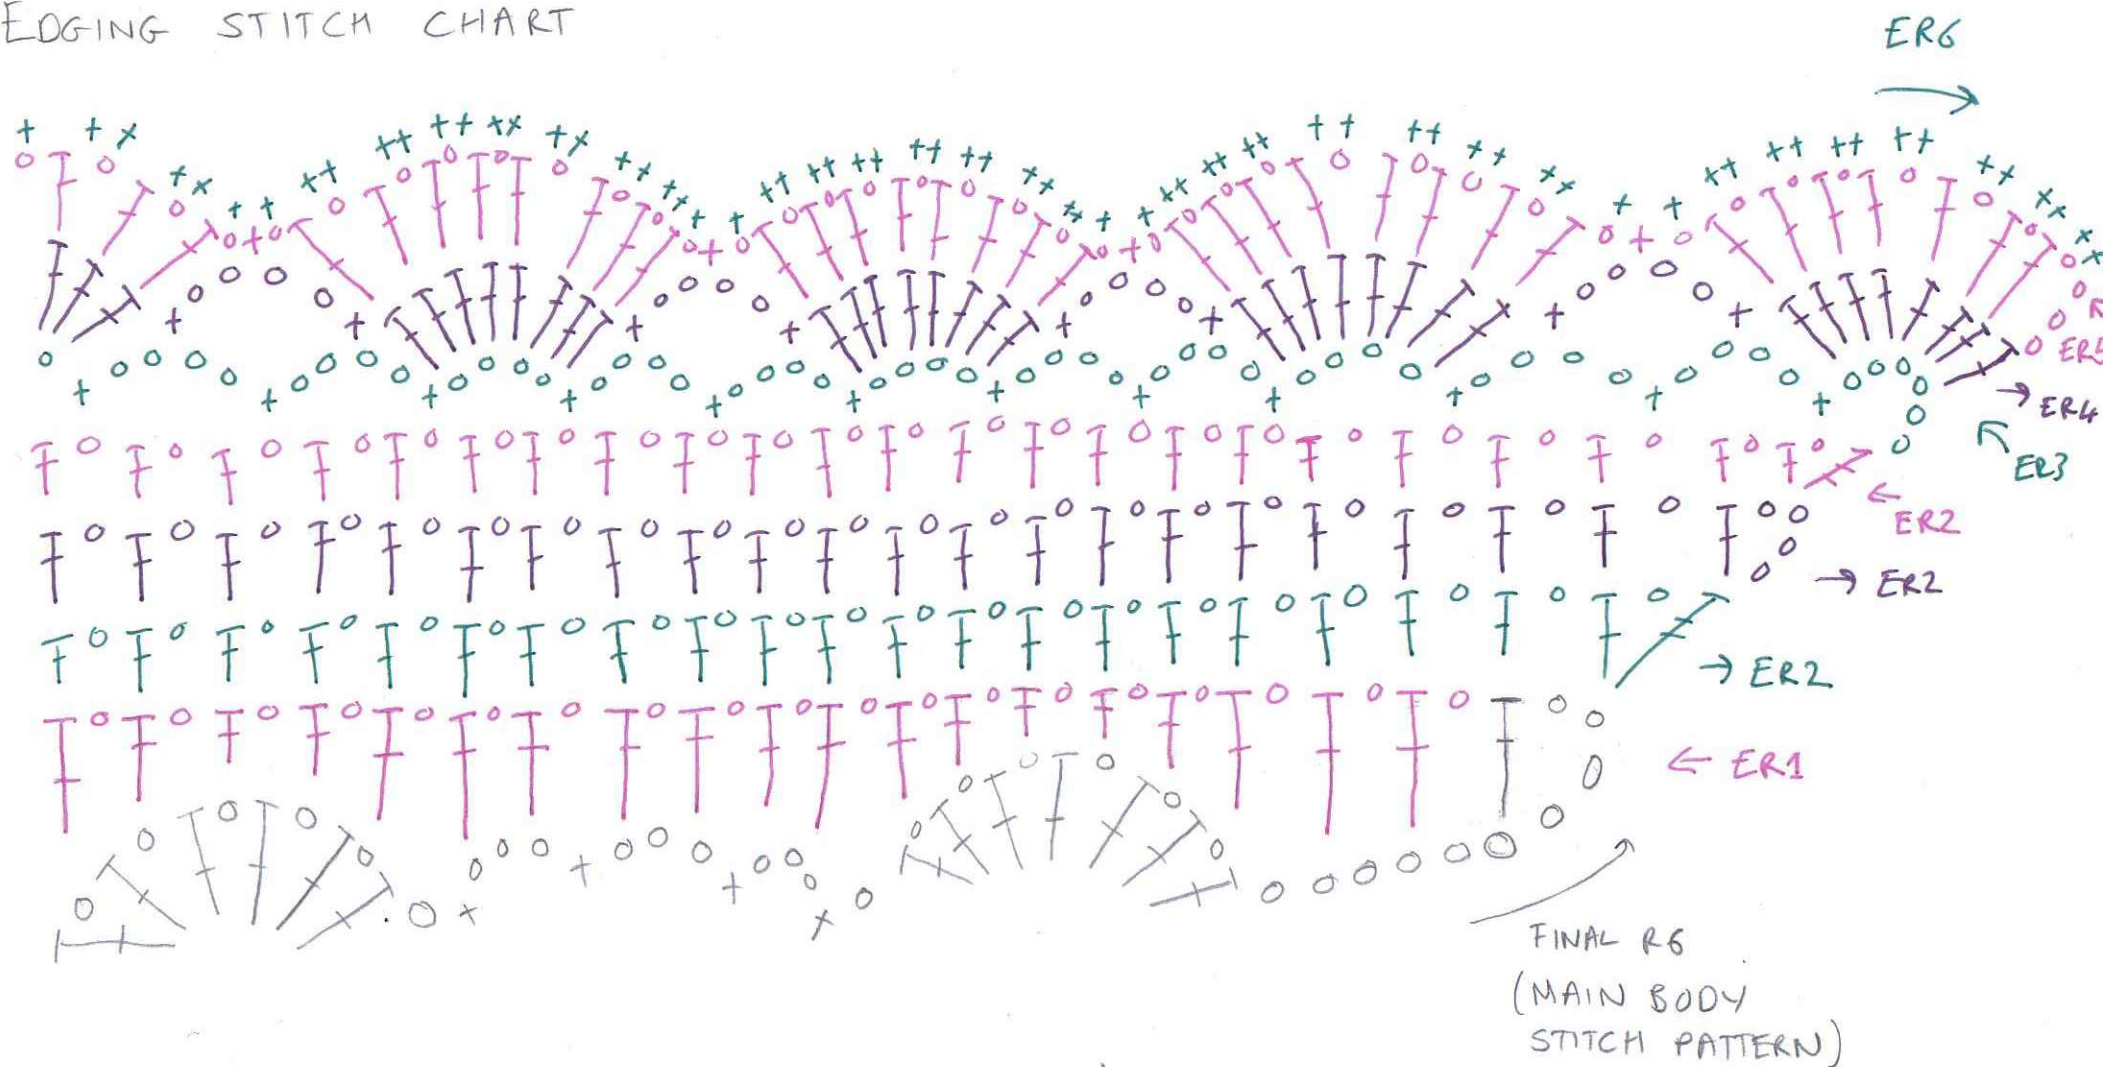 EDGING STITCH CHART
ER6
ER5
ER4
ER3
ER2
ER2
ER2
ER1
FINAL R6
(MAIN BODY
STITCH PATTERN)